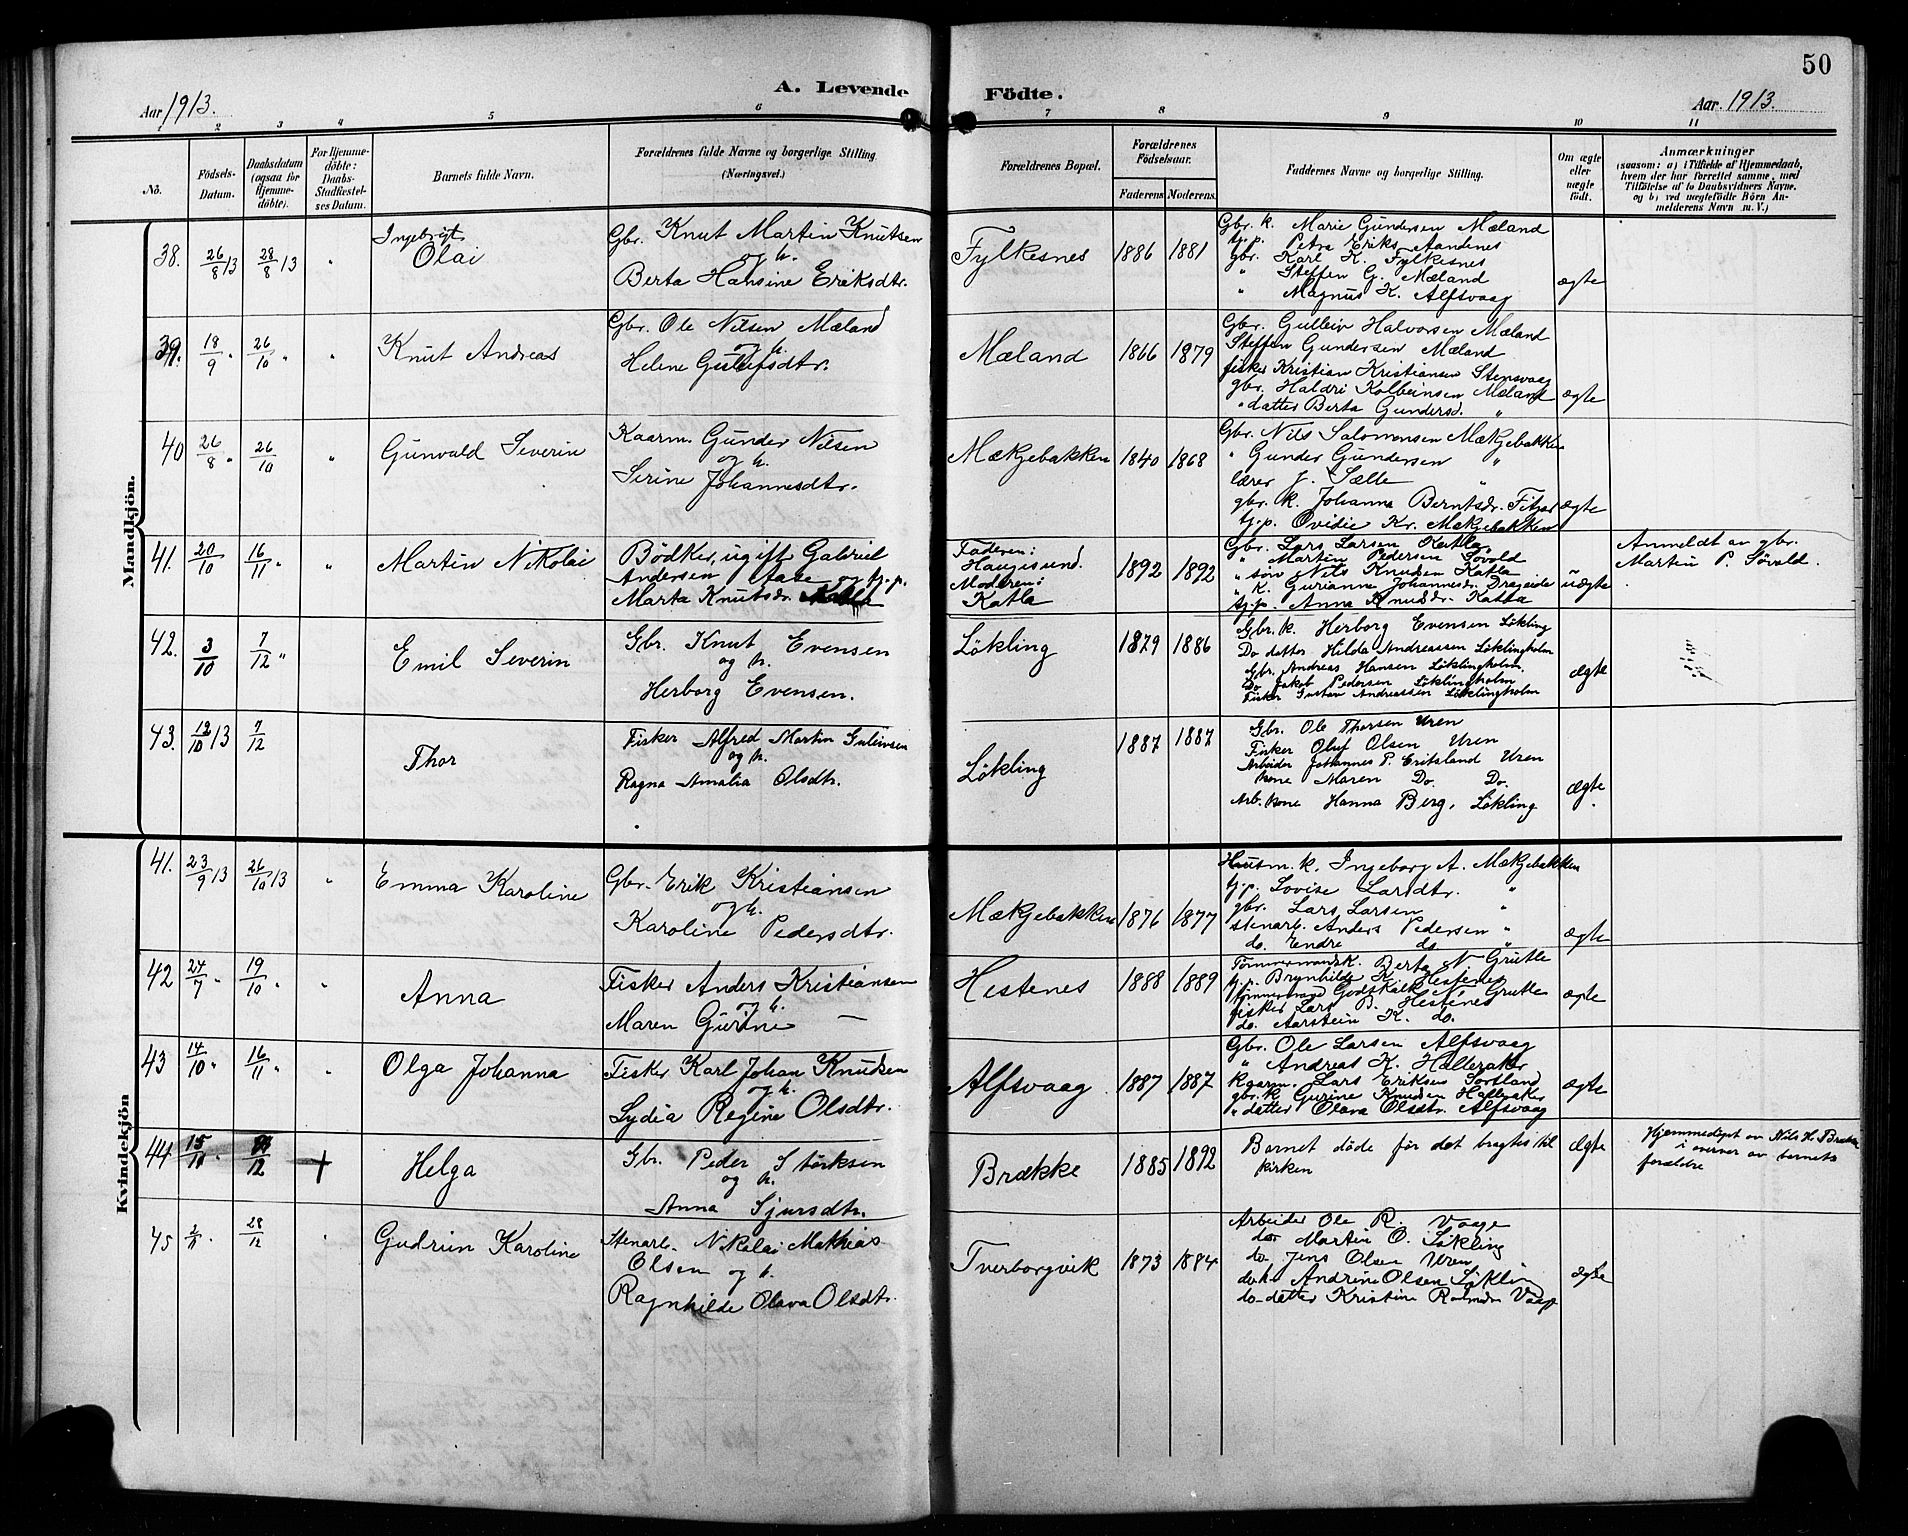 50
A. Levende Födte.
Aar 1913.
Aar 1913.
2 3 4 5 6 7 8 9 10 11
No.
Födsels-Datum.
Daabsdatum (ogsaa for Hjemme-döbte).
For Hjemme-döbte: Daabs-Stadfæstel-ses Datum.
Barnets fulde Navn.
Forældrenes fulde Navne og borgerlige Stilling.
(Næringsvei.)
Forældrenes Bopæl.
Forældrenes Födselsaar.
Faderens Moderens.
Faddernes Navne og borgerlige Stilling.
Om ægte eller uægte födt.
Anmærkninger
(saasom: a) i Tilfælde af Hjemmedaab,
hvem der har forrettet samme, med
Tilföielse af to Daabsvidners Navne.
og b) ved uægtefödte Börn An-
melderens Navn m. V.)
Mandkjön.
38. 26/8 13 28/8 13 "
Ingebrigt
Olai
Gbr. Knut Martin Knutsen
og h.
Berta Hansine Eriksdtr.
Fylkesnes 1886 1881
Gbr. k. Marie Gundersen Mæland
tj.p. Petra Eriks. Aandenes
gbr. Karl K. Fylkesnes
" Steffen G. Mæland
" Magnus K. Alfsvaag
ægte
39. 18/9 " 26/10 " "
Knut Andreas
Gbr. Ole Nilsen Mæland
og h.
Helene Gulleifsdtr.
Mæland 1866 1879
Gbr. Gulleiv Halvorsen Mæland
Steffen Gundersen Mæland
fisker Kristian Kristiansen Stensvaag
gbr. Haldri Kolbeinsen Mæland
" datter Berta Gundersd. "
ægte
40 26/8 " 26/10 "
Gunvald Severin
Kaarm. Gunder Nilsen
og h.
Serine Johannesdtr.
Mækjebakken 1840 1868
Gbr. Nils Salomonsen Mækjebakken
" Gunder Gundersen "
lærer J. Sælle "
gbr. k. Johanna Berntsdr. Fitjar
tj.p. Ovidie Kr. Mækjebakken
ægte
41. 20/10 16/11 " "
Martin Nikolai
Bödker, ugift Gabriel
Andersen Aase og tj.p.
Marta Knutsdr.
Faderen:
Haugesund.
Moderen:
Katla
1892 1892
Gbr. Lars Larsen Katla
" Martin Pedersen Sövold
" sön Nils Knudsen Katla
" k. Gurianna Johannesdr. Drageide
tj.p. Anna Knutsdr. Katla
uægte
Anmeldt av gbr.
Martin P. Sövold.
42. 3/10 7/12 "
Emil Severin
Gbr. Knut Evensen
og h.
Herborg Evensen.
Lökling 1879 1886
Gbr. k. Herborg Evensen Lökling
Do datter Hilda Andreassen Löklingholm
Gbr. Andreas Hansen Löklingholm
Do Jakob Pedersen Löklingholm
Fisker Gustav Andreassen Löklingholm
ægte
43. 12/10 13 7/12
Thor
Fisker Alfred Martin Guleivsen
og h.
Ragna Amalia Olsdtr.
Lökling 1887 1887
Gbr. Ole Thorsen Uren
Fisker Oluf Olsen Uren
Arbeider Johannes P. Eritsland Uren
kone Maren Do. Do.
Arb. kone Hanna Berg, Lökling
ægte
Kvindekjön
41. 23/9 13 26/10 13 "
Emma Karoline
Gbr. Erik Kristiansen
og h.
Karoline Pedersdtr.
Mækjebakken 1876 1877
Husm. k. Ingeborg A. Mækjebakken
tj.p. Lovise Larsdtr. "
gbr. Lars Larsen "
stenarb. Anders Pedersen "
do. Endre do "
ægte
42 24/7 " 19/10 " "
Anna
Fisker Anders Kristiansen
og h.
Maren Gurine —
Hestenes 1888 1889
Tömmermandsk. Berta N. Grutle
tj.p. Brynhilde K. Hestenes
tömmermand Godtskalk N. Grutle
fisker Lars B. Hestenes
do. Aarstein K. do.
ægte
43 14/10 " 16/11 " "
Olga Johanna
Fisker Karl Johan Knudsen
og h.
Lydia Regine Olsdtr.
Alfsvaag 1887 1887
Gbr. Ole Larsen Alfsvaag
" Andreas K. Halleraker
Kaarm. Lars Eriksen Sortland
gbr. k. Gurine Knudsen Halleraker
" datter Olava Olsdtr. Alfsvaag
ægte
44 15/11 " /12 +
Helga
Gbr. Peder Störksen
og h.
Anna Sjursdtr.
Brække 1885 1892
Barnet döde för det bragtes til
kirken
ægte
Hjemmedöpt av Nils H. Brække
i nærver av barnets
forældre
45 2/11 " 28/12 "
Gudrun Karoline
Stenarb. Nikolai Mathias
Olsen og h.
Ragnhilde Olava Olsdtr.
Tverborgvik 1873 1884
Arbeider Ole R. Vaage
do Martin O. Lökling
do. Jens Olsen Uren
do. k. Andrine Olsen Lökling
do-datter Kristine Vaage
ægte